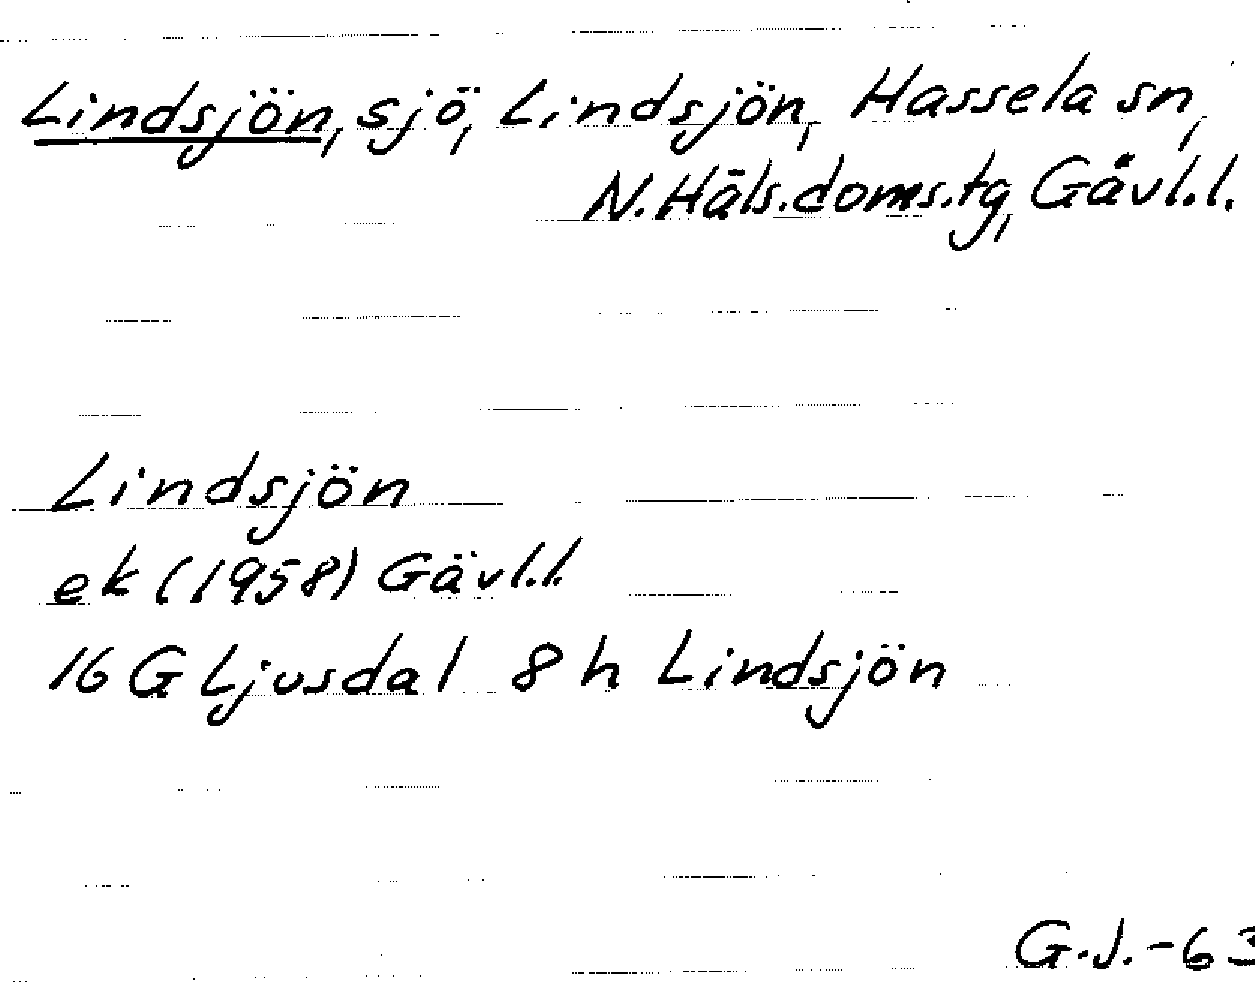 Lindsjön, sjö, Lindsjön, Hassela sn,
N. Häls. doms. tg, Gävl. l.
Lindsjön
ek (1958) Gävl. l.
16 G Ljusdal 8 h Lindsjön
G.J. -63